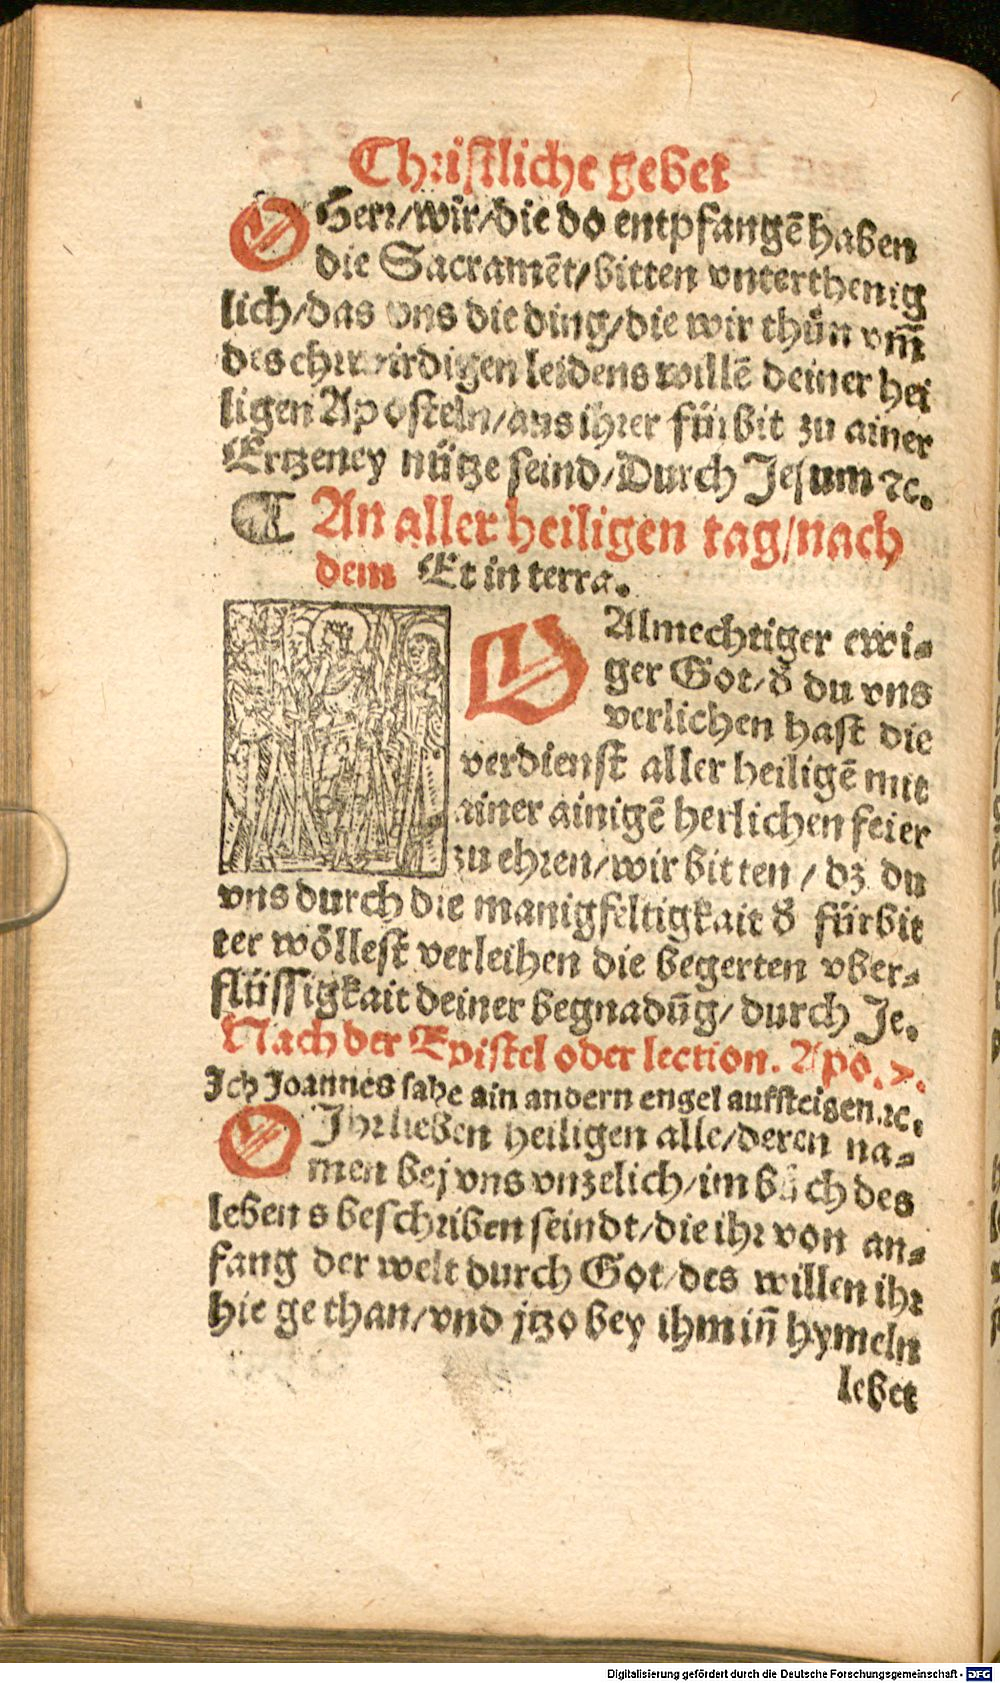 Christliche gebet
O Herr/wir/die do entpfangē haben
die Sacramēt/bitten vnterthenig
lich/das vns die ding/die wir thůn vm̄
des ehrwirdigen leidens willē deiner hei
ligen Aposteln/aus ihrer fürbit zu ainer
Ertzeney nütze seind/Durch Jesum ⁊c.
¶ An aller heiligen tag/nach
dem Et in terra.
O Almechtiger ewi⸗
ger Got/d̕ du vns
verlichen hast die
verdienst aller heiligē mit
ainer ainigē herlichen feier
zu ehren/wir bitten/dz du
vns durch die manigfeltigkait d̕ fürbit
ter wöllest verleihen die begerten vber⸗
flüssigkait deiner begnadūg/durch Je.
Nach der Epistel oder lection. Apo. 7.
Ich Joannes sahe ain andern engel auffsteigen.⁊c.
O Jhr lieben heiligen alle/deren na⸗
men bej vns vnzelich/im bůch des
lebens beschriben seindt/die ihr von an⸗
fang der welt durch Got/des willen ihr
hie gethan/vnd jtzo bey ihm in̄ hymeln
lebet
Digitalisierung gefördert durch die Deutsche Forschungsgemeinschaft - DFG